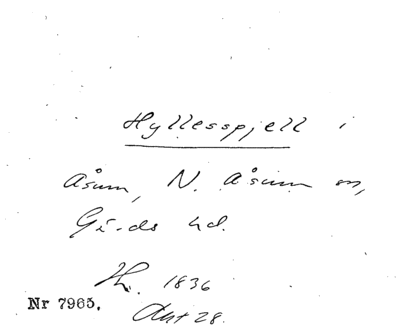 Hyllesspjell i
Åsum, N. Åsum sn,
Gärds hd.
H. 1836
Nr 7965. Ant 28.